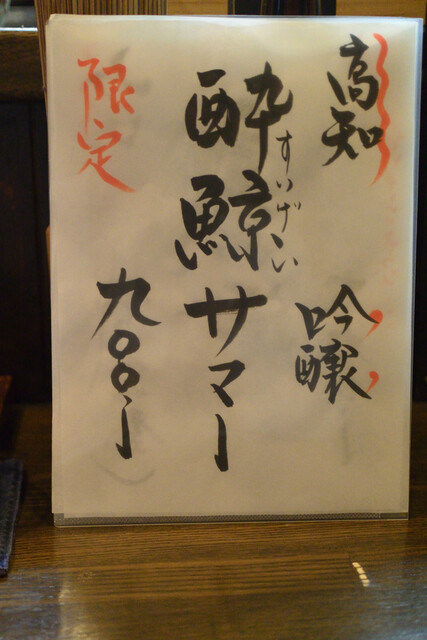 高知
吟醸
酔鯨サマー
すいげい
限定
九〇〇ー